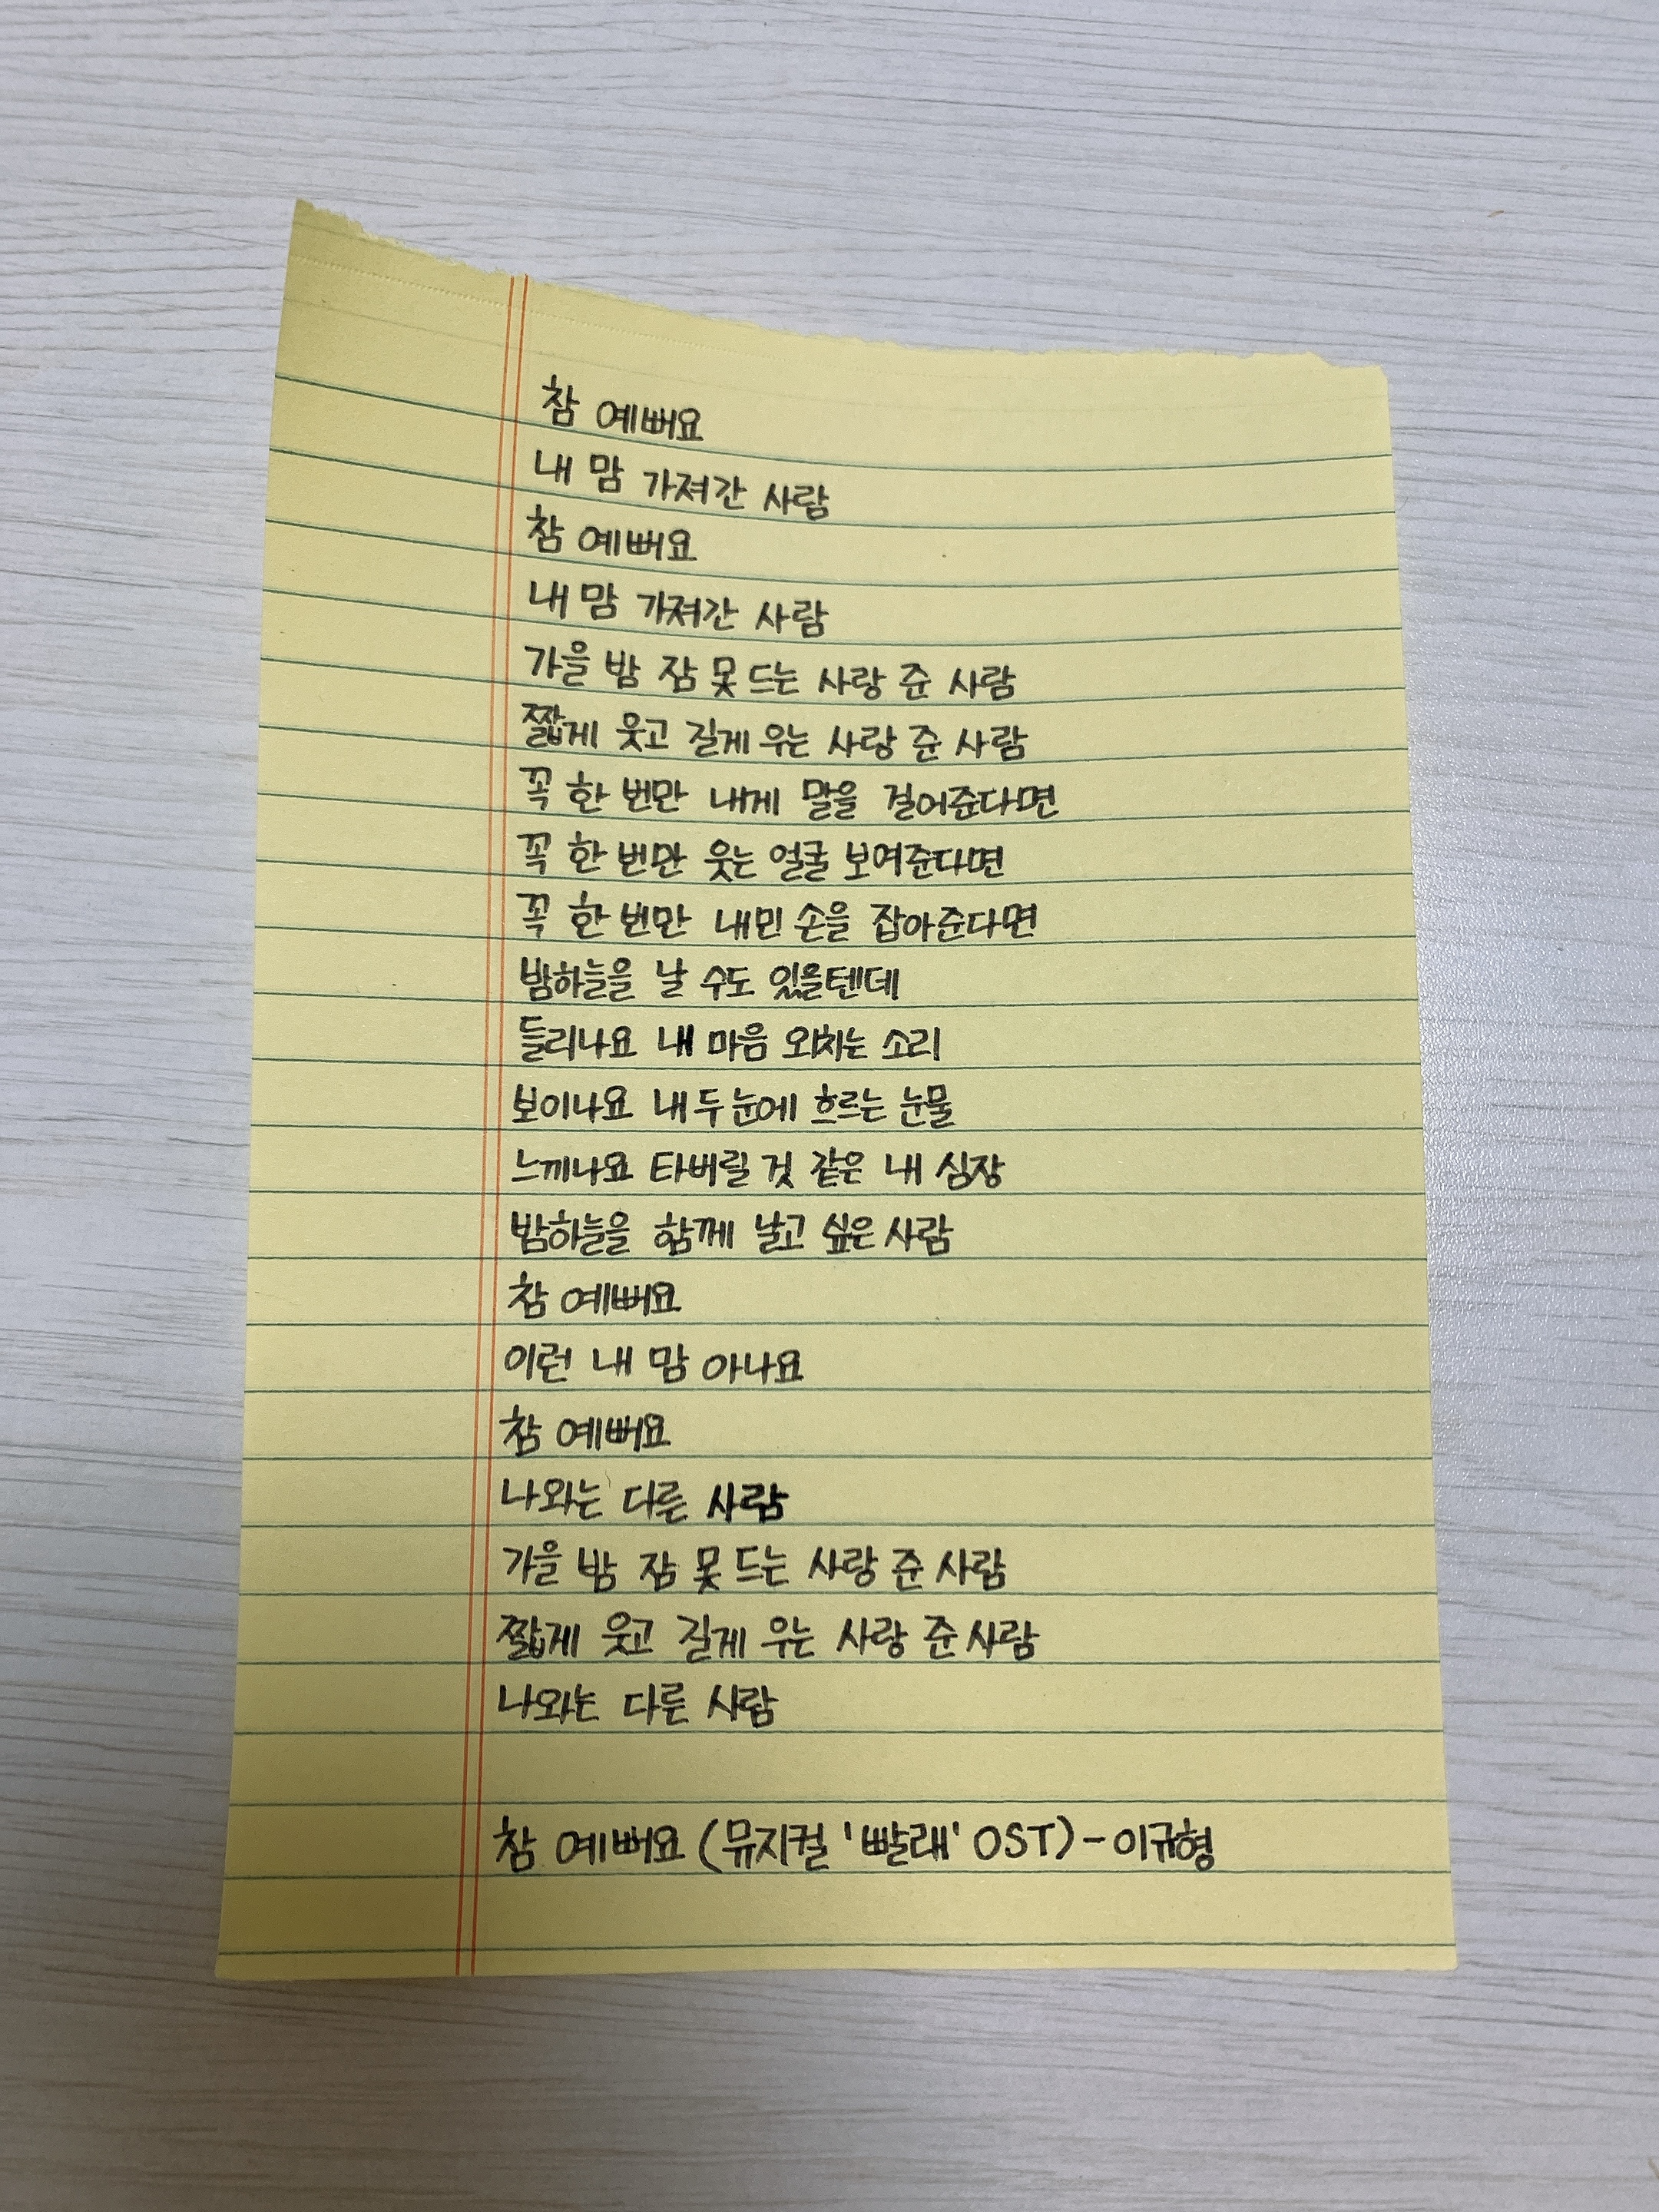 참 예뻐요
내 맘 가져간 사람
참 예뻐요
내 맘 가져간 사람
가을 밤 잠 못 드는 사랑 준 사람
짧게 웃고 길게 우는 사랑 준 사람
꼭 한 번만 내게 말을 걸어준다면
꼭 한 번만 웃는 얼굴 보여준다면
꼭 한 번만 내민 손을 잡아준다면
밤하늘을 날 수도 있을텐데
들리나요 내 마음 외치는 소리
보이나요 내 두 눈에 흐르는 눈물
느끼나요 타버릴 것 같은 내 심장
밤하늘을 함께 날고 싶은 사람
참 예뻐요
이런 내 맘 아나요
참 예뻐요
나와는 다른 사람
가을 밤 잠 못 드는 사랑 준 사람
짧게 웃고 길게 우는 사랑 준 사람
나와는 다른 사람
참 예뻐요 (뮤지컬 '빨래' OST) - 이규형